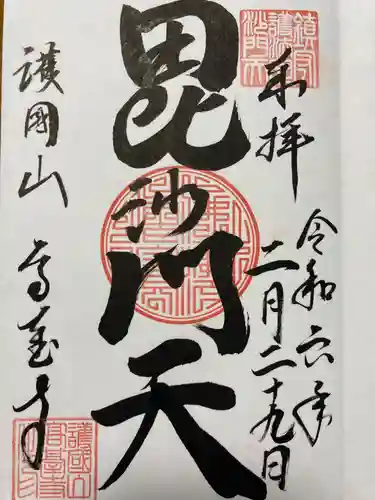 奉拝
令和六年
二月二十九日
毘沙門天
護國山
高臺寺